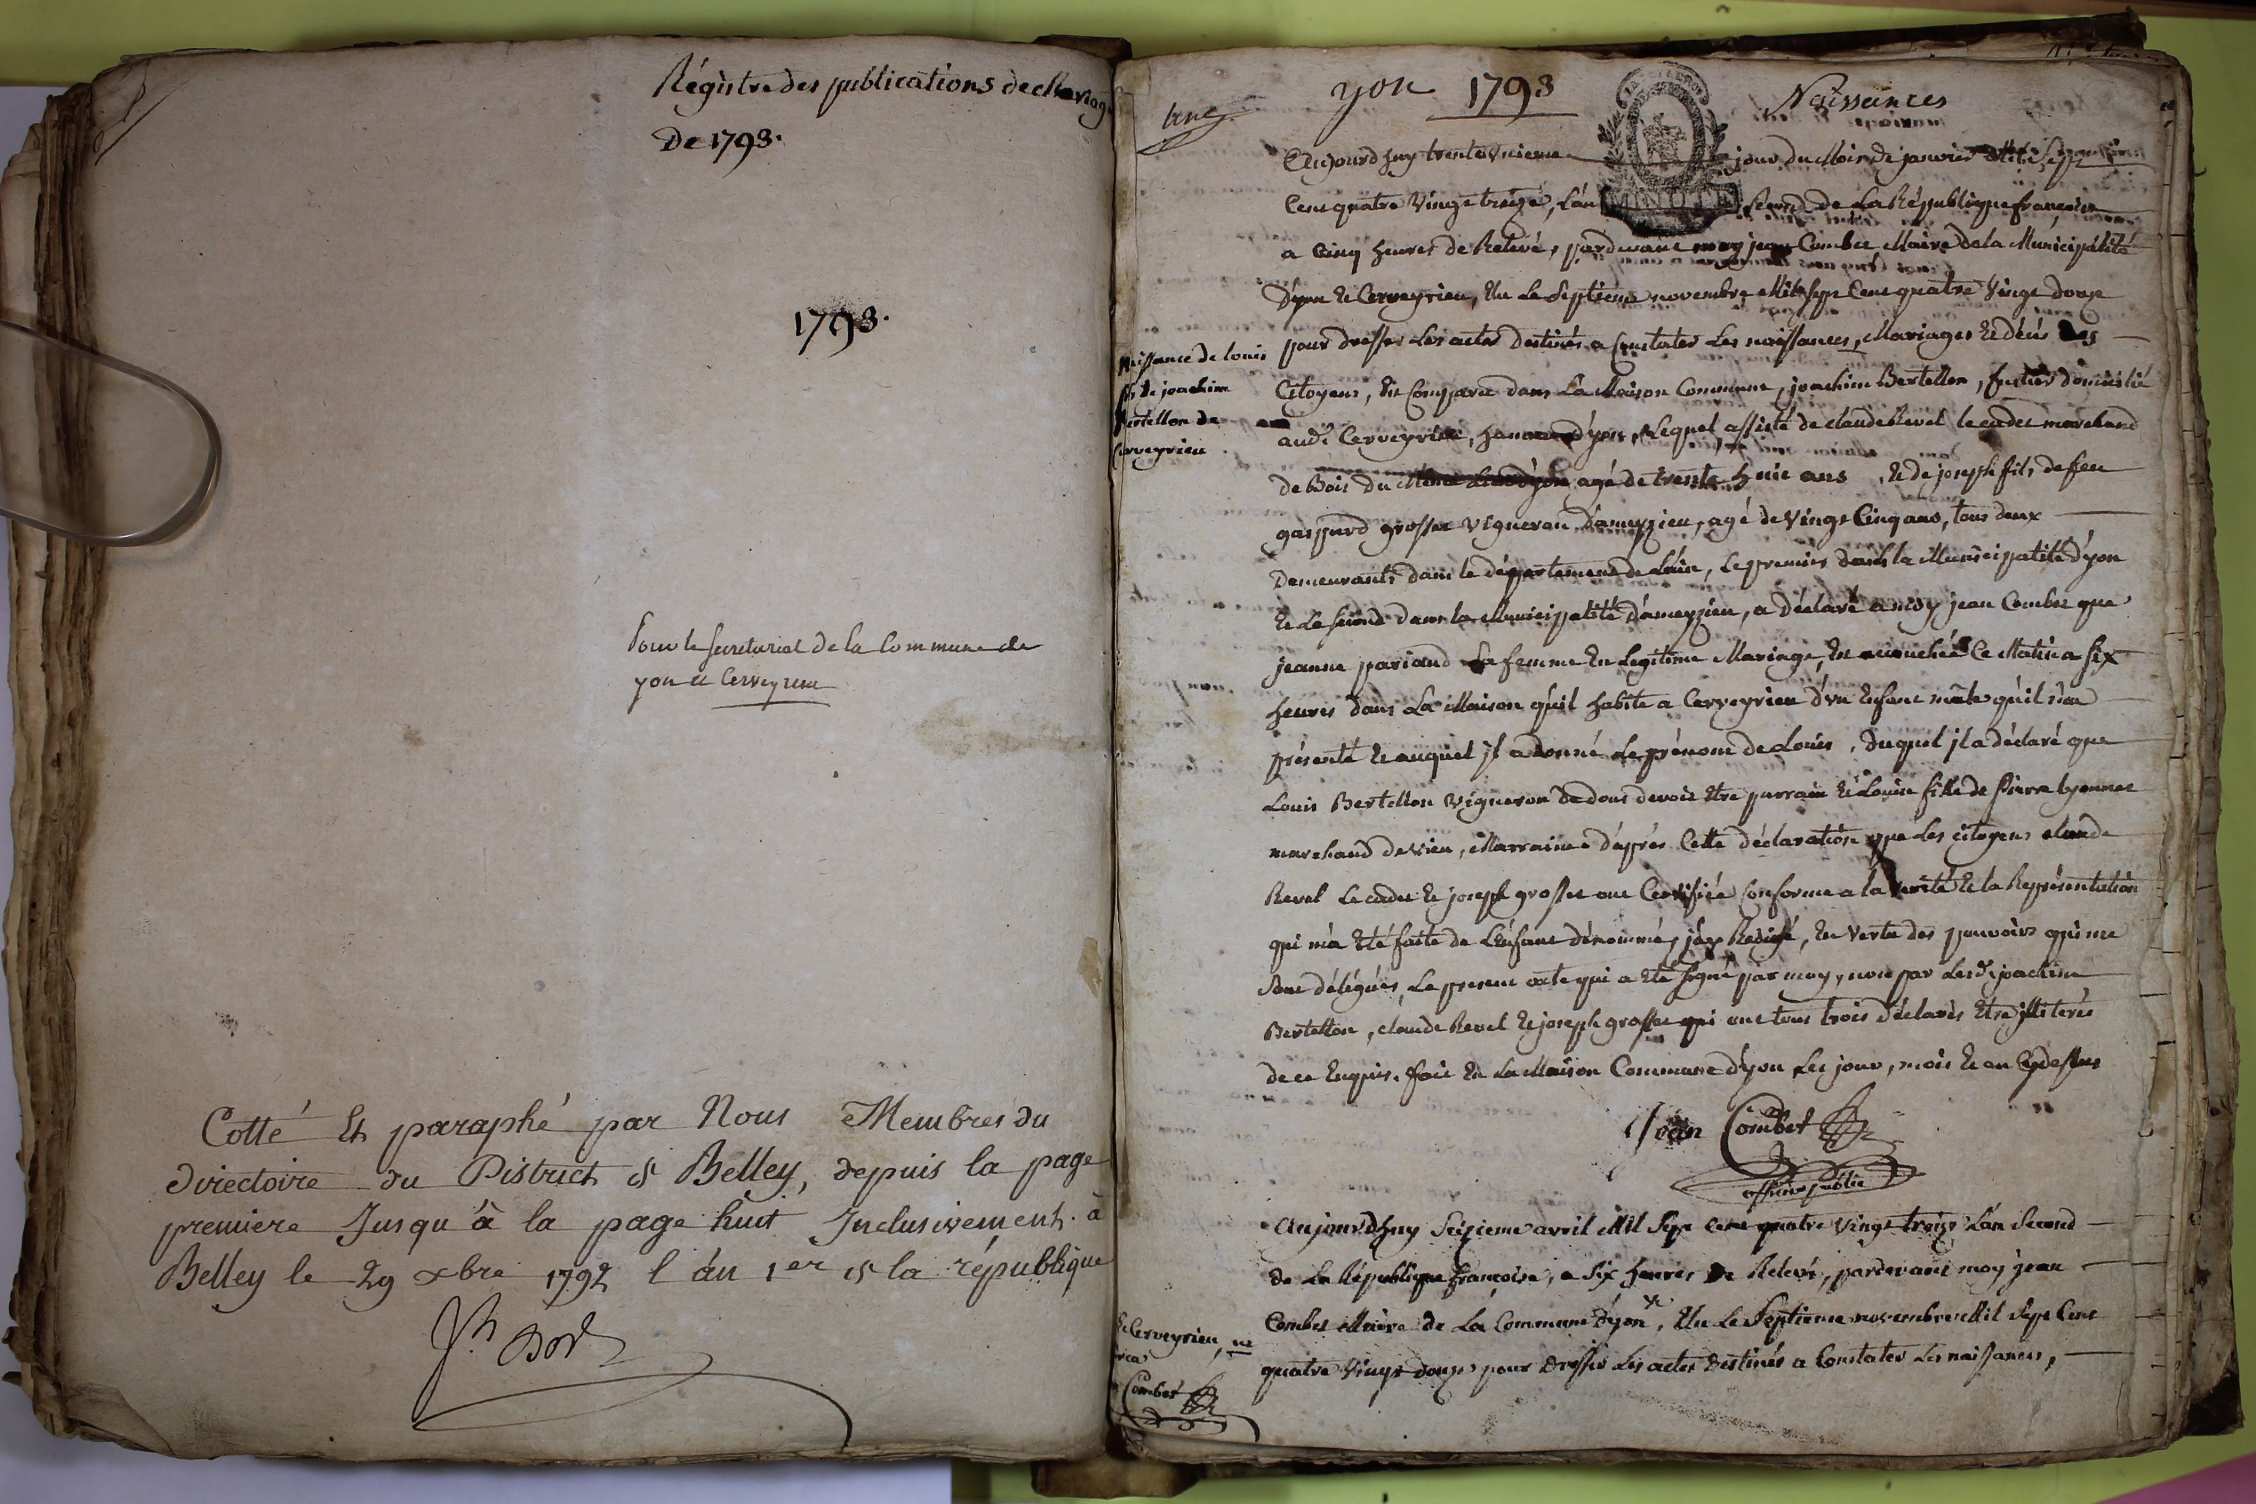 Régistre des publications de Mariage
De 1793.
1793.
Pour le secretariat de la Commune de
yon et Cerveyrieu
Cotté Et paraphé par Nous Membres du
directoire du District de Belley, depuis la page
premiere Jusqu'à la page huit Inclusivement. à
Belley le 29 xbre 1792 l'an 1er de la république
yon 1793
Naissances
MINUTE
Aujourd'huy trente unieme jour du Mois de janvier Mil Sept
Cent quatre Vingt treize, L'an Second de La République françoise
a Cinq heures de Relevé, pardevant moy jean Combet Maire de la Municipalité
d'yon et Cerveyrieu, Elu Le Septieme novembre Mil Sept Cent quatre Vingt douze
pour dresser Les actes Destinés a Constater Les naissances, Mariages et décès des
Citoyens, Est Comparu dans La Maison Commune, joachim Bertellon, domicilié
audt Cerveyrieu, hameau d'yon, Lequel assisté de claude Revel le cadet marchand
de Bois du agé de trente huit ans, et de joseph fils de feu
gaspard grosset Vigneron d'ameyzieu, agé de Vingt Cinq ans, tous deux
Demeurants dans le département de L'ain, Le premier dans la Municipalité d'yon
et Le second dans la Municipalité d'ameyzieu, a déclaré a moy jean Combet que
jeanne pariaud Sa femme En Legitime Mariage, Est accouchée Ce Matin a six
heures dans La Maison qu'il habite a Cerveyrieu d'un Enfant mâle qu'il m'a
présenté et auquel il a donné Le prénom de Louis, duquel il a déclaré que
Louis Bertellon Vigneron de dons devoit Etre parrain et Louise fille de Pierre Lyonnet
marchand de Vieu, Marraine d'après Cette déclaration que Les citoyens claude
Revel Le cadet et joseph grosset ont Certifié Conforme a la Verité et la Représentation
qui m'a Eté faite de L'Enfant dénommé, j'ay Redigé, En Vertu des pouvoirs qui me
Sont délégués, Le present acte qui a Eté Signé par moy, non par Lesdt joachim
Bertellon, claude Revel et joseph grosset qui ont tous trois déclarés Etre illiterés
de ce Enquis. fait En La Maison Commune d'yon Les jour, mois et an Cydessus
Naissance de Louis
fils de joachim
Bertellon de
Cerveyrieu
Jean Combet
officier public
Aujourd'huy Seizieme avril Mil Sept Cent quatre Vingt treize L'an Second
de La République françoise, a Six heures de Relevé, pardevant moy jean
Combet Maire de La Commune d'yon, Elu Le Septieme novembre Mil Sept Cent
quatre Vingt douze pour Dresser Les actes Destinés a Constater Les naissances,
et Cerveyrieu,
Combet